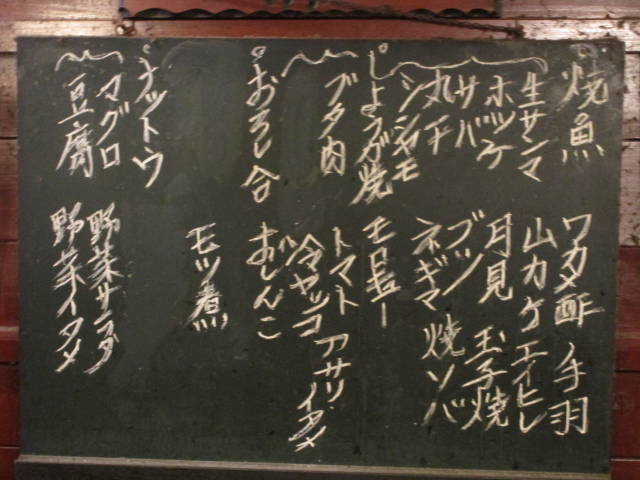 焼魚
生サンマ
ホッケ
サバ
丸干
シシャモ
しょうが焼
ブタ肉
おろし合
ナットウ
マグロ
豆腐
ワカメ酢
手羽
山カケ
エイヒレ
月見
玉子焼
ブツ
ネギマ
焼ソバ
モロキュー
トマト
アサリイタメ
冷ヤッコ
おしんこ
モツ煮
野菜サラダ
野菜イタメ